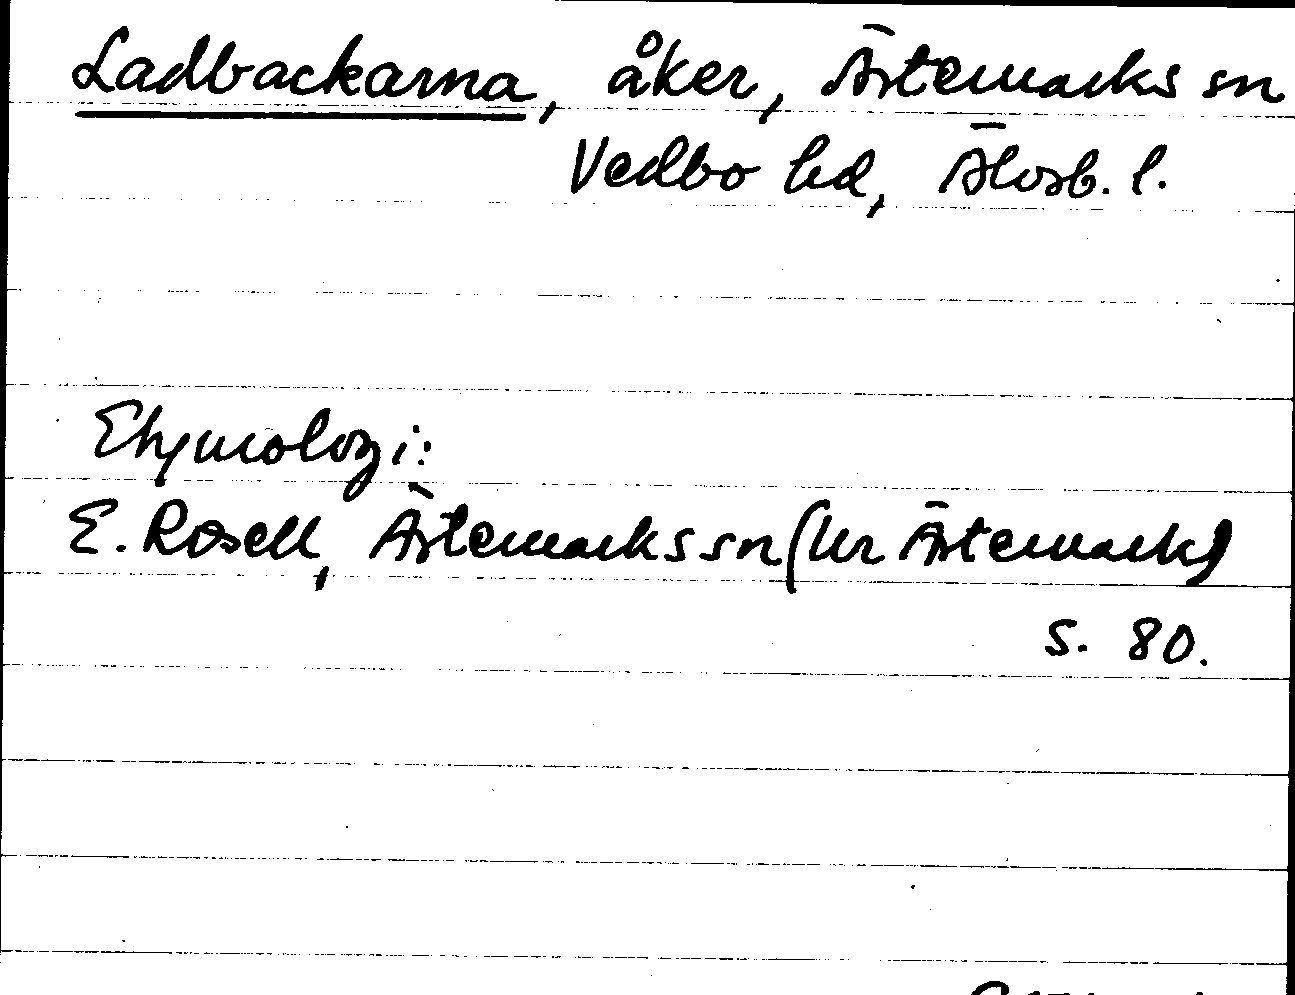 Ladbackarna, åker, Ärtemarks sn
Vedbo hd, Älvsb. l.
Etymologi:
E. Rosell, Ärtemarks sn (hr Ärtemark)
s. 80.